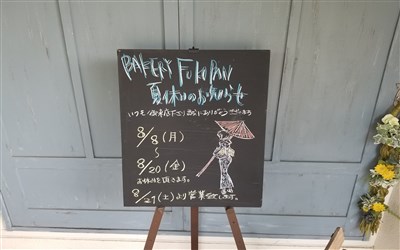 BAKERY FUKUPAN
夏休みのお知らせ
いつもご来店下さり誠にありがとうございます
8/8(月)
〜
8/20(金)
お休みを頂きます。
8/21(土)より営業致します。